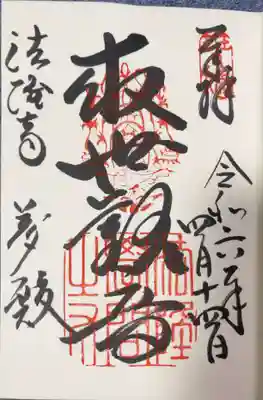 奉拝
令和六年
四月十四日
救世観音
法隆寺 夢殿